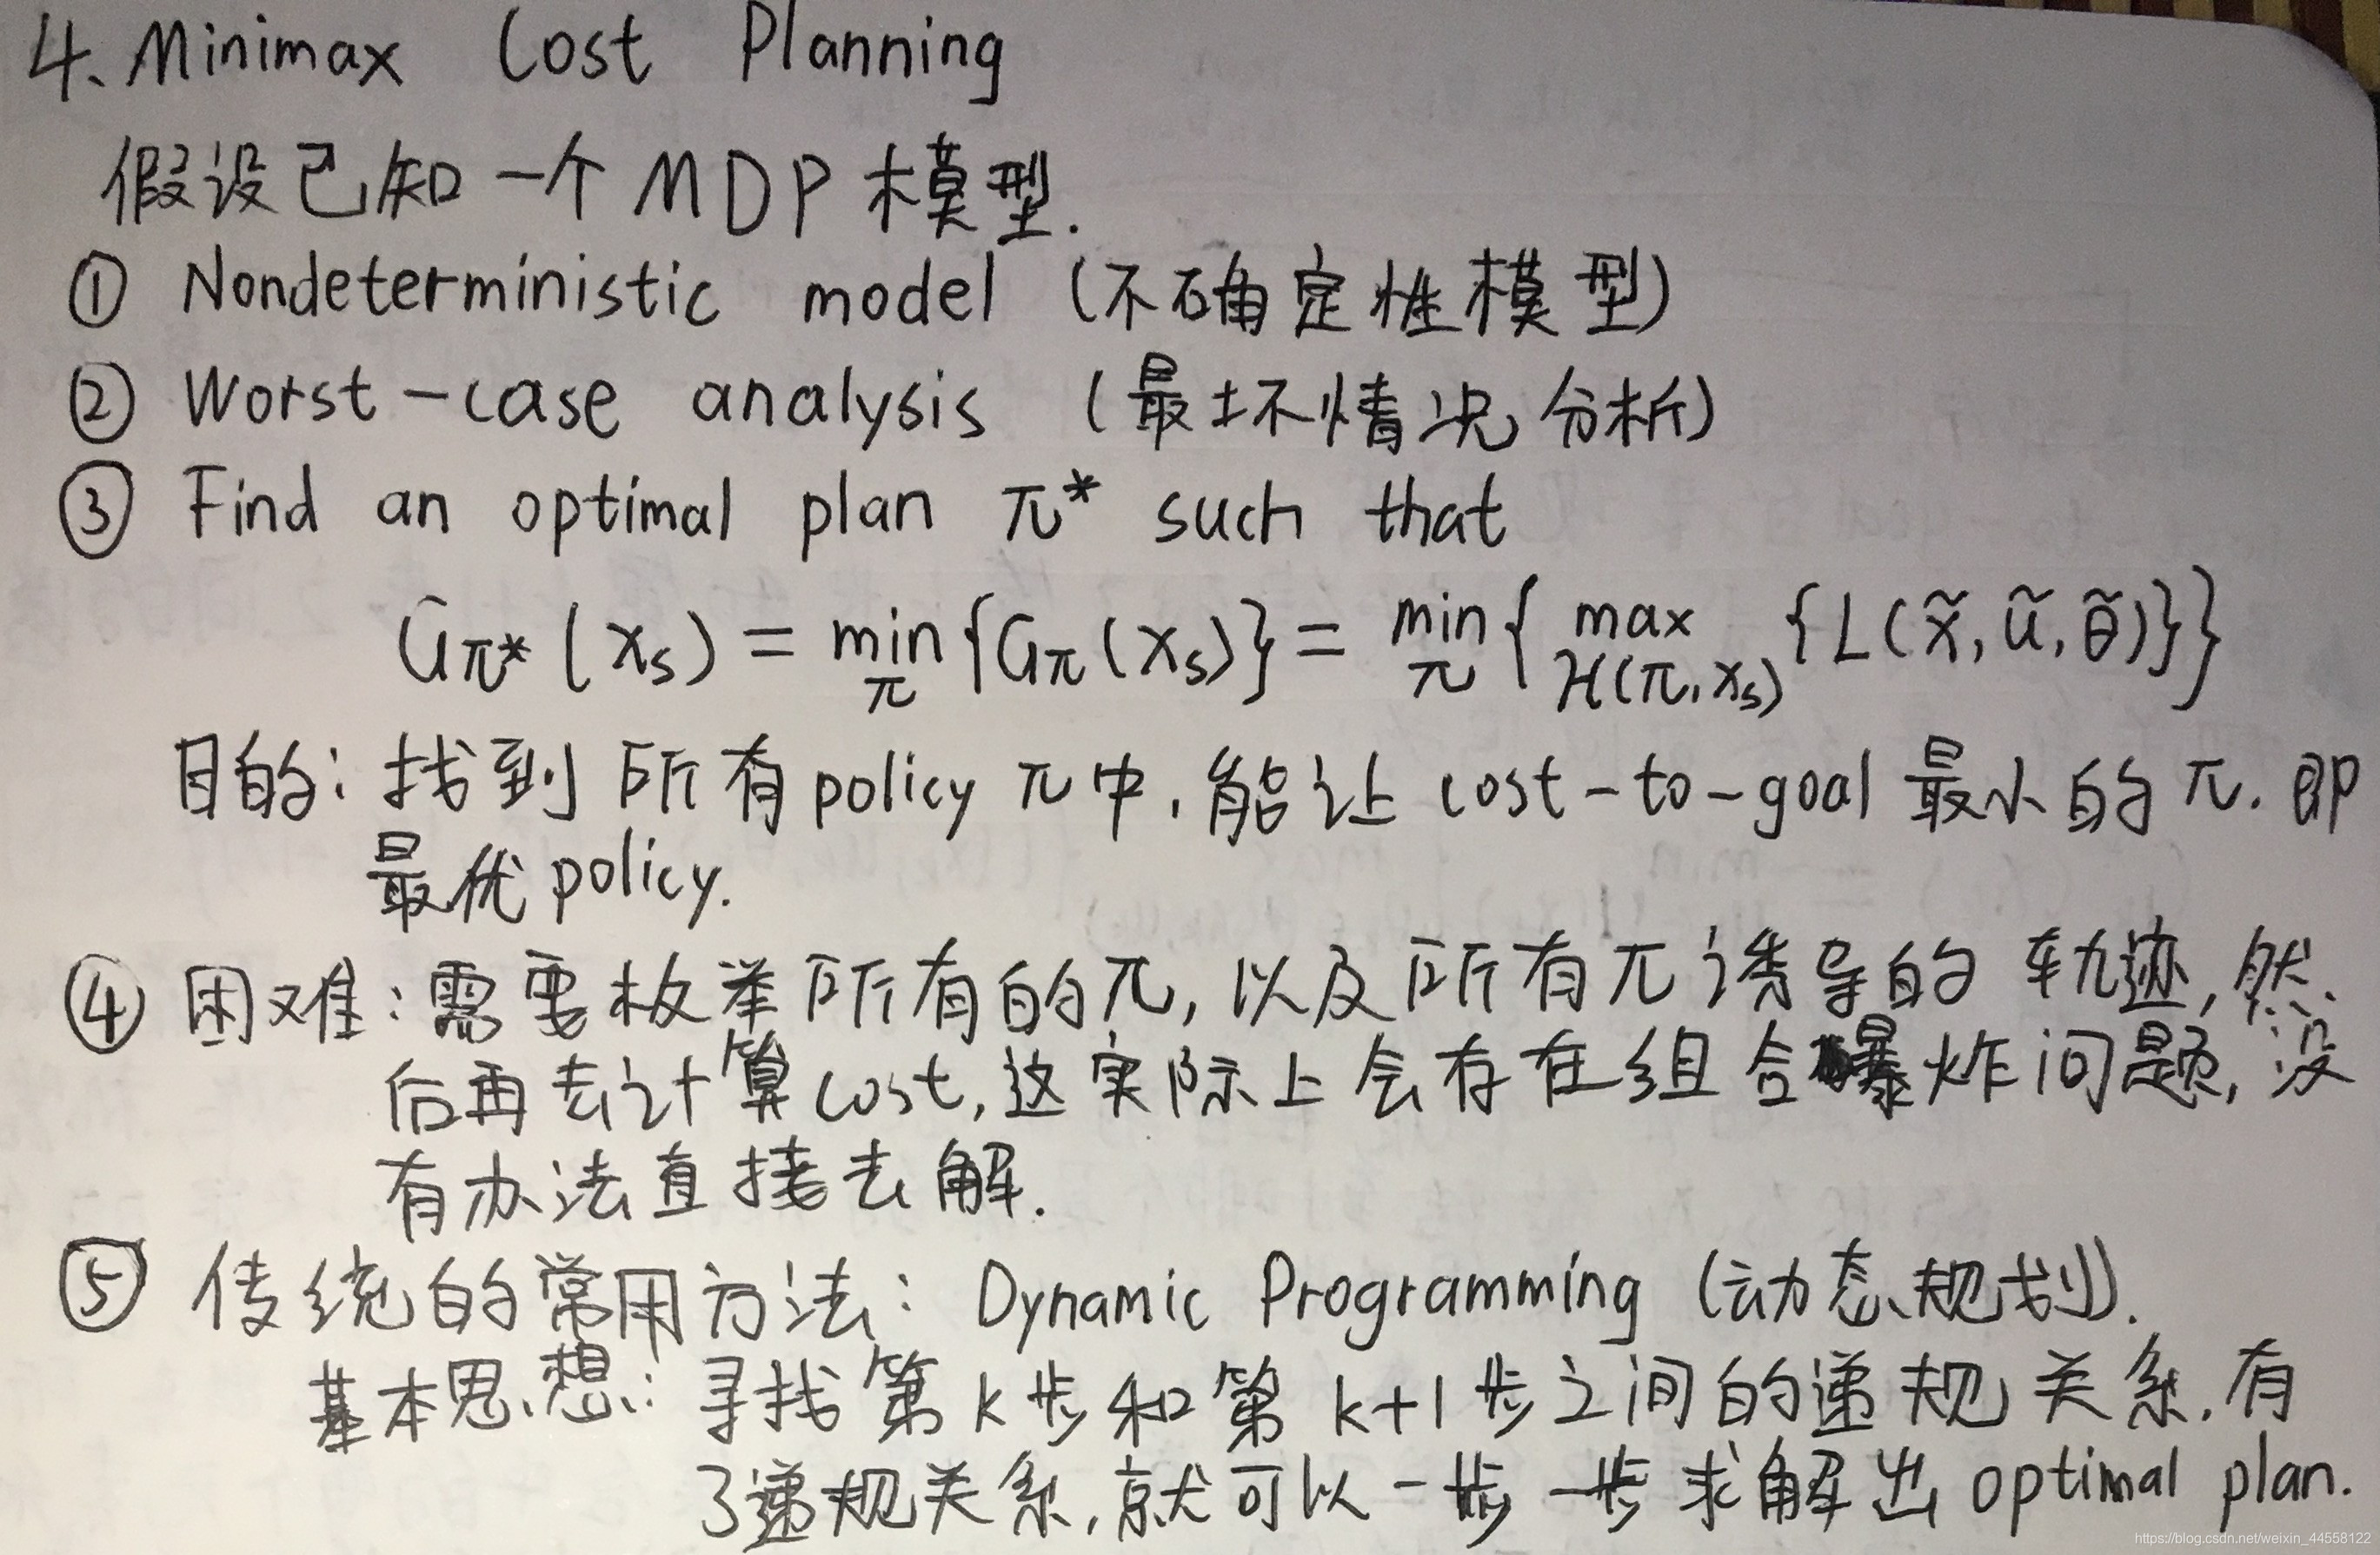 4. Minimax Cost Planning
假设已知一个MDP模型.
① Nondeterministic model (不确定性模型)
② Worst-case analysis (最坏情况分析)
③ Find an optimal plan π* such that
G_{π*}(x_s) = min_π {G_π(x_s)} = min_π { max_{H(π,x_s)} {L(x̃, ũ, θ̃)}}
目的: 找到所有policy π中, 能让cost-to-goal最小的π. 即
最优policy.
④ 困难: 需要枚举所有的π, 以及所有π诱导的轨迹, 然
后再去计算cost, 这实际上会存在组合爆炸问题, 没
有办法直接去解.
⑤ 传统的常用方法: Dynamic Programming (动态规划).
基本思想: 寻找第k步和第k+1步之间的递规关系. 有
了递规关系, 就可以一步一步求解出optimal plan.
https://blog.csdn.net/weixin_44558122